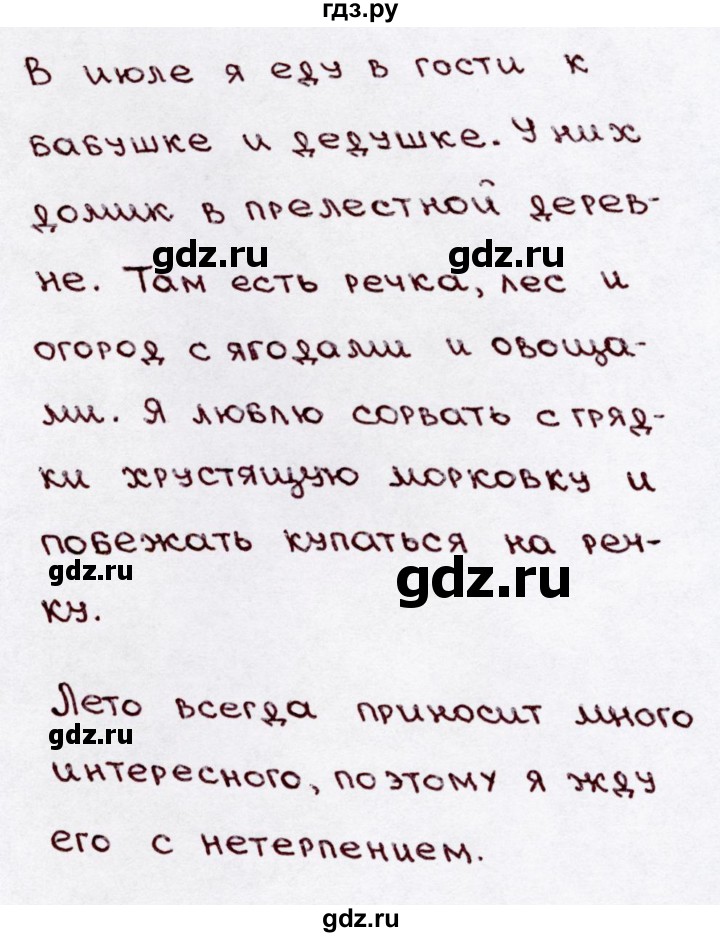 гдз.ру
В июле я еду в гости к
бабушке и дедушке. У них
домик в прелестной дерев-
gdz.ru gdz.ru
не. Там есть речка, лес и
огород с ягодами и овоща-
ми. Я люблю сорвать с гряд-
ки хрустящую морковку и
побежать купаться на реч-
gdz.ru gdz.ru
ку.
Лето всегда приносит много
gdz.ru
интересного, поэтому я жду
его с нетерпением.
gdz.ru